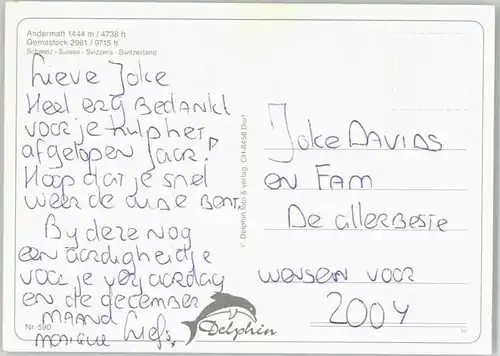 Andermatt 1444 m / 4738 ft
Gemsstock 2961 / 9715 ft
Schweiz - Suisse - Svizzera - Switzerland
Lieve Joke
Heel erg Bedankt
voor je hulp het
afgelopen jaar!
Hoop dat je snel
weer de oude bent.
By deze nog
een aardigheidje
voor je verjaardag
en de december
MAAND
monique Liefs,
Nr. 590
Delphin
© Delphin foto & verlag, CH-8458 Dorf
Joke DAVIDS
en FAM
De allerbeste
wensen voor
2004